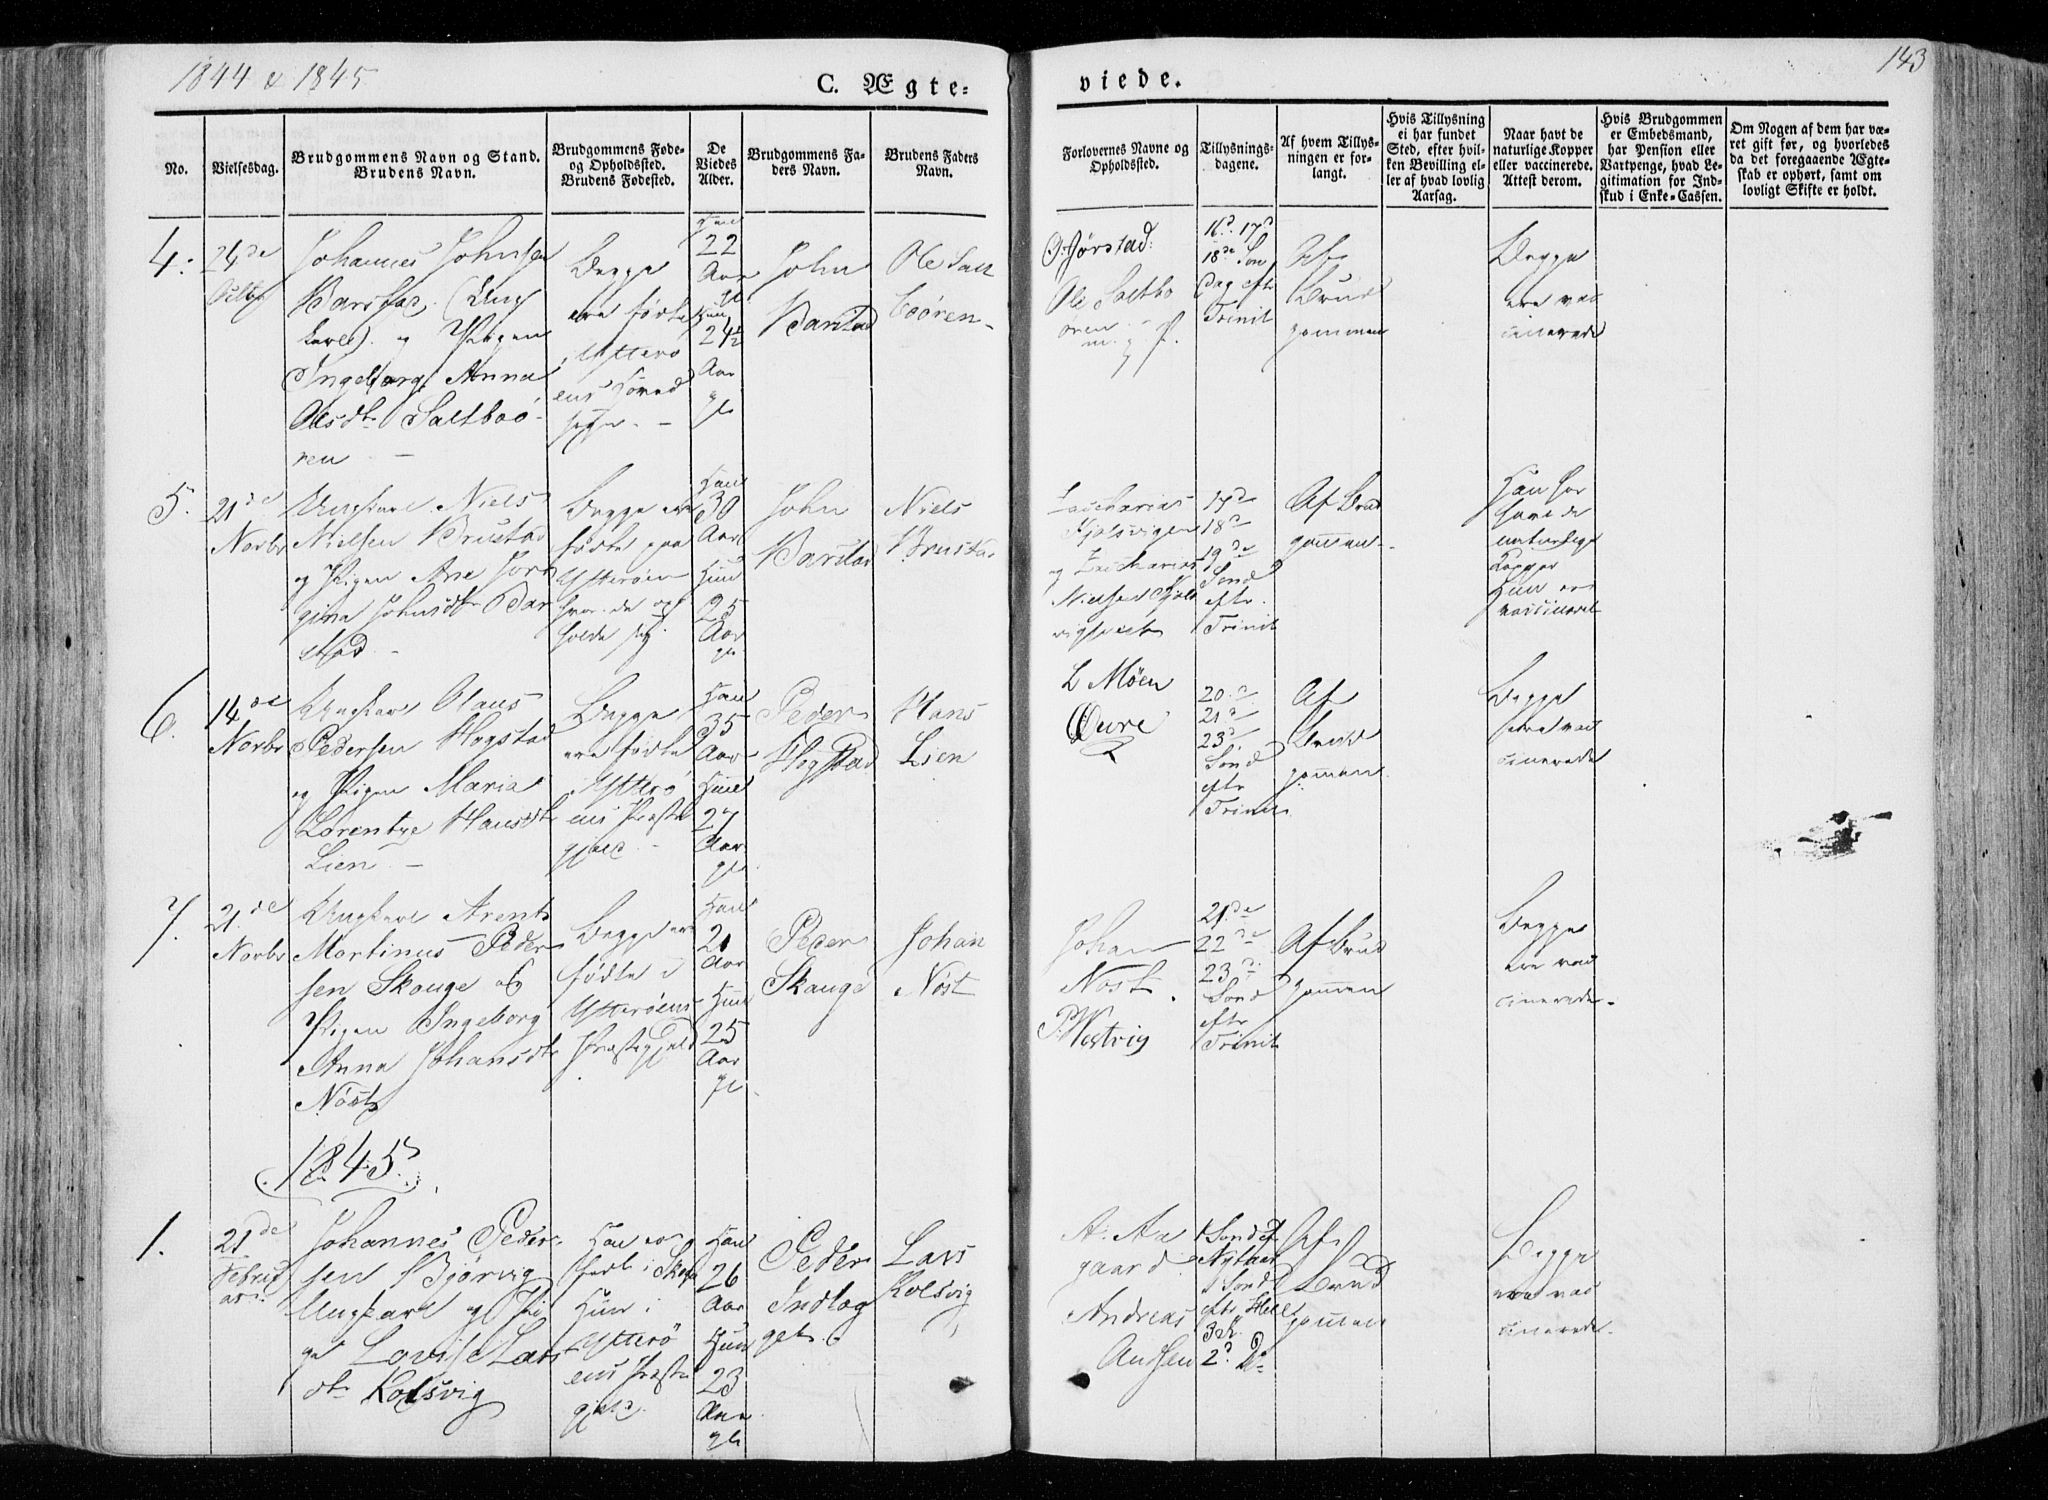 1844 & 1845
C. Ægte=
viede.
143
No.
Vielsesdag.
Brudgommens Navn og Stand.
Brudens Navn.
Brudgommens Føde=
og Opholdssted.
Brudens Fødested.
De
Viedes
Alder.
Brudgommens Fa=
ders Navn.
Brudens Faders
Navn.
Forlovernes Navne og
Opholdssted.
Tillysnings=
dagene.
Af hvem Tillys=
ningen er for=
langt.
Hvis Tillysning
ei har fundet
Sted, efter hvil=
ken Bevilling el=
ler af hvad lovlig
Aarsag.
Naar havt de
naturlige Kopper
eller vaccinerede.
Attest derom.
Hvis Brudgommen
er Embedsmand,
har Pension eller
Vartpenge, hvad Le=
gitimation for Ind=
skud i Enke=Cassen.
Om Nogen af dem har væ=
ret gift før, og hvorledes
da det foregaaende Ægte=
skab er ophørt, samt om
lovligt Skifte er holdt.
4.
24de
Octbr
Johannes Johnsen
Barstad (Ung
karl) og Pigen
Ingeborg Anna
Olsdtr Saltboö-
ren -
Begge
ere fødte
i Ytterö
ens Hoved
sogn -
Han
22
Aar
gl
Hun
24½
Aar
gl.
John
Barstad
Ole Salt
boören -
P. Jörstad
Ole Saltbo
ören
m. g. P.
16d 17d
18de Søn
Dag eftr
Trinit
Af
Brud
gommen
Begge
ere vac
cinerede
5.
21de
Novbr
Ungkarl Niels
Nielsen Brustad
og Pigen Ane Jør
gina Johnsdtr Bar
stad -
Begge ere
fødte paa
Ytterøen
hvor de op
holde sig.
Han
30
Aar
Hun
25
Aar
gl.
John
Barstad
Niels
Brustad
Zacharias
Hjelsvigen
og Zacharias
Nielsen Hjels
vig
17de
18d
19de
Sønd
eftr.
Trinit
Af Brud
gommen -
Han har
havt de
naturlige
Kopper
Hun er
vaccineret
6.
14de
Novbr
Ungkarl Olaus
Pedersen Hogstad
og Pigen Maria
Lorentze Hansdtr
Lien -
Begge
ere fødte
i Ytterö
ens Præste
gjæld -
Han
35
Aar
Hun
27
Aar
gl.
Peder
Hogstad
Hans
Lien
L Möen
Øure
20.d
21d
23d
Sønd
eftr
Trinit.
Af
Brud
gommen.
Begge
ere vac
cinerede
7.
21de
Novbr
Ungkarl Arent
Martinus Peder
sen Skauge og
Pigen Ingeborg
Anna Johansdtr
Nöst
Begge ere
fødte i
Ytterøens
Præstegjæld
Han
21
Aar
Hun
25
Aar
gl.
Peder
Skauge
Johan
Nöst
Johan
Nöst.
P. Westvig
21.de
22de
23d
Sønd
eftr
Trinit
Af Brud
gommen
Begge
ere vac
cinerede -
1845.
1.
21de
Februar
Johannes Peder-
sen Bjørvig
Ungkarl og Pi
ge Lovise Lars
dtr Kolsvig
Han er
født i Skogn
Hun i
Ytterö
ens Præste
gjeld.
Han
26
Aar
Hun
23
Aar
gl
Peder
Indlog
get.
Lars
Kolsvig
A. Aa
gaard
Andreas
1 Sønd ef
Nytaar
1 Sønd
eftr Hell
3 K.
2d Do
Af
Brud
gommen
Begge
ere vac
cinerede -